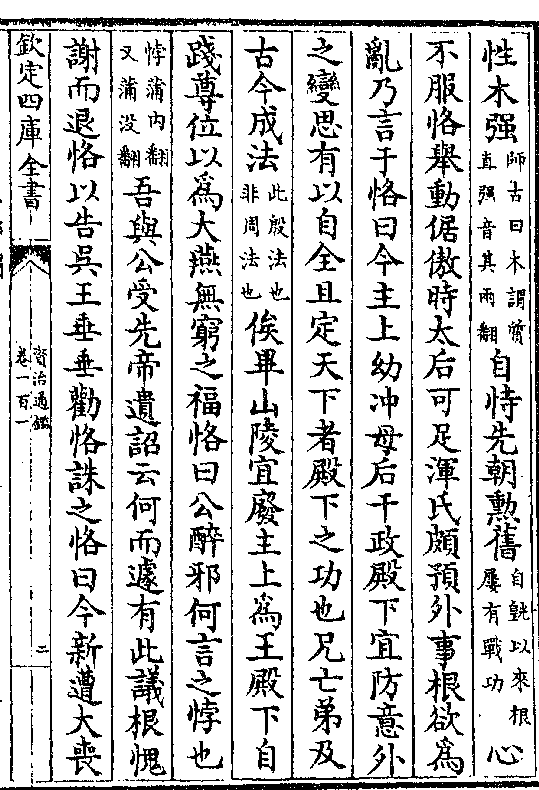 性木强師古曰木謂質直强音其兩翻自恃先朝勲舊自皝以來根屢有戰功心
不服恪舉動倨傲時太后可足渾氏頗預外事根欲為
亂乃言于恪曰今主上幼冲母后干政殿下宜防意外
之變思有以自全且定天下者殿下之功也兄亡弟及
古今成法此殷法也非周法也俟畢山陵宜廢主上為王殿下自
踐尊位以為大燕無窮之福恪曰公醉邪何言之悖也
悖蒲内翻又蒲没翻吾與公受先帝遺詔云何而遽有此議根愧
謝而退恪以告吳王垂垂勸恪誅之恪曰今新遭大喪
欽定四庫全書
資治通鑑
卷一百一
二